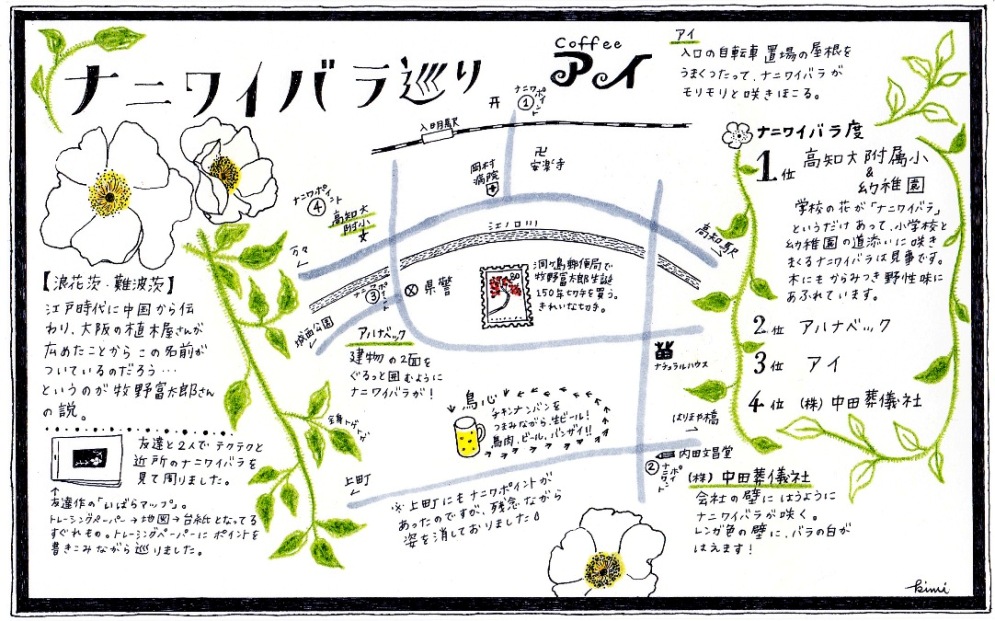 ナニワイバラ巡り
Coffee
アイ
アイ
入口の自転車置場の屋根を
うまくつたって、ナニワイバラが
モリモリと咲きほこる。
ナニワポイント
①
入明駅
卍
安楽寺
岡村
病院
ナニワポイント
④
高知大
附小
★
万々
江ノロ川
高知駅
ナニワポイント
③
県警
城西公園
洞ヶ島郵便局で
牧野富太郎生誕
150年切手を買う。
きれいな切手。
80
アルナベック
建物の2面を
ぐるっと囲むように
ナニワイバラが!
ナチュラルハウス
鳥心
チキンナンバンを
つまみながら、生ビール!
鳥肉、ビール、バンザイ!!
はりまや橋
内田文昌堂
②
ナニワポイント
上町
(株)中田葬儀社
会社の壁にはうように
ナニワイバラが咲く。
レンガ色の壁に、バラの白が
はえます!
※上町にもナニワポイントが
あったのですが、残念ながら
姿を消しておりました
ナニワイバラ度
1位 高知大附属小
&
幼稚園
学校の花が「ナニワイバラ」
というだけあって、小学校と
幼稚園の道添いに咲き
まくるナニワイバラは見事です。
木にもからみつき野性味に
あふれています。
2位 アルナベック
3位 アイ
4位 (株)中田葬儀社
【浪花茨・難波茨】
江戸時代に中国から伝
わり、大阪の植木屋さんが
広めたことからこの名前が
ついているのだろう…
というのが牧野富太郎さん
の説。
全身トゲトゲ
友達と2人でテクテクと
近所のナニワイバラを
見て周りました。
友達作の「いばらマップ」。
トレーシングペーパー→地図→台紙となってる
すぐれもの。トレーシングペーパーにポイントを
書きこみながら巡りました。
kimi